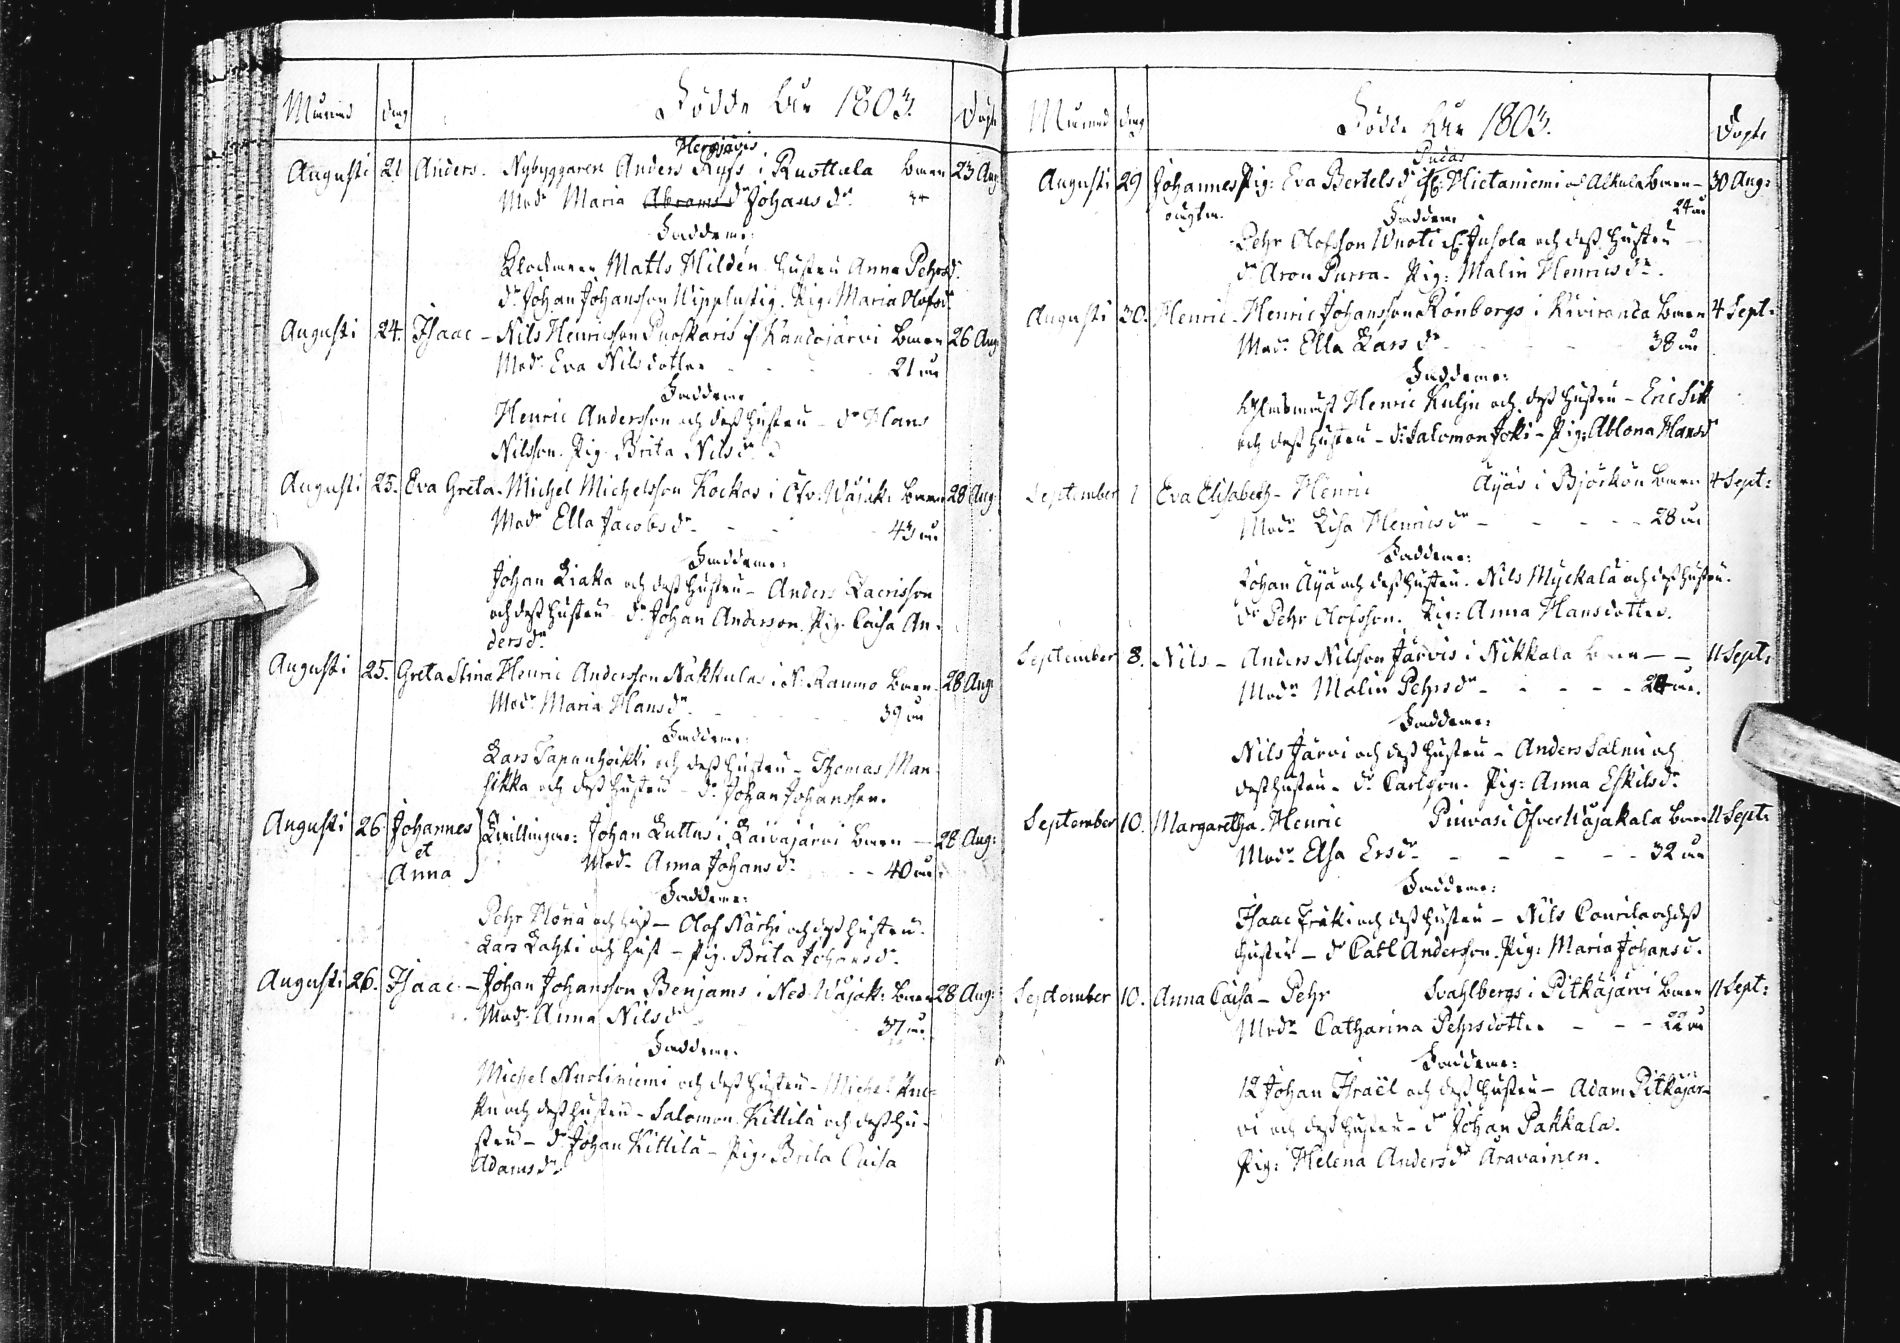 Månad dag Födde År 1803. Döpte
Hergjärvis
Augusti 21 Anders. Nybyggaren Anders Ryss i Ruottala barn 23 Aug
Modr Maria Abramsdr Johansdr
Faddrene:
Klockaren Matts Hildén hustru Anna Pehrsdr
dr Johan Johansson Pig: Maria Olofsdr
Augusti 24. Isaac - Nils Henricsson Puoskaris i Kandojärvi barn 26 Aug
Modr Eva Nilsdotter - - - 21 år
Faddrene
Henric Andersson och dess hustru - dr Hans
Nilsson. Pig. Brita Nilsdr
Augusti 25. Eva Greta. Michel Michelsson Kockos i Öfv: Wojak: barn 28 Aug:
Modr Ella Jacobsdr - - - 43 år
Faddrene:
Johan Liaka och dess hustru - Anders Zacrisson
och dess hustru dr Johan Anderson. Pig. Caisa An-
dersdr
Augusti 25. Greta Stina Henric Andersson Näkkulas i N: Raumo barn 28 Aug:
Modr Maria Hansdr - - 39 år
Faddrene:
Lars Tapanhoikki och dess hustru - Thomas Man-
sikka och dess hustru - dr Johan Johansson.
Augusti 26 Johannes } Tvillingar: Johan Luttus i Kaivajärvi barn - 28 Aug:
et
Anna Modr Anna Johansdr - - 40 år
Faddrene:
Pehr Hona och hust - Olof Närhi och dess hustru.
Lars Lahti och hust - Pig. Brita Johansdr
Augusti 26. Isaac - Johan Johansson Benjams i Ned. Wojak: barn 28 Aug:
Modr Anna Nilsdr 37 år.
Faddrene.
Michel Nuotiniemi och dess hustru - Michel
och dess hustru - Salomon Kittilä och dess hu-
stru - dr Johan Kittilä - Pig: Brita Caisa
Adamsdr
Månad dag Födde År 1803. Döpte
Pudas
Augusti 29 Johannes Pig: Eva Bertelsdr if: Hietaniemi och Alkula barn - 30 Aug:
oägta. 24 år
Faddrene
Pehr Olofsson Wuoti if: Juhola och dess hustru
dr Aron Purra - Pig: Malin Henricsdr.
Augusti 30. Henric - Henric Johansson Rönbergs i Kiviranda barn 4 Sept:
Modr Ella Larsdr - - - 38 år
Faddrene:
Henric Kulju och dess hustru - Eric Sik
och dess hustru - dr: Salomon Joki - Pig: Ablona Hansdr
September 1 Eva Elisabeth - Henric Äyäs i Björkön barn 4 Sept:
Modr Lisa Henricsdr - - - 28 år
Faddrene:
Johan Äyä och dess hustru. Nils Myckala och dess hustru.
dr Pehr Olofsson. Pig: Anna Hansdotter.
September 8. Nils - Anders Nilsson Järvis i Nikkala barn - - 11 Sept:
Modr Malin Pehrsdr - - - - 24 år.
Faddrene:
Nils Järvi och dess hustru - Anders Salmu och
dess hustru - dr Carlson. Pig: Anna Eskilsdr
September 10. Margaretha. Henric Piuvas i Öfver Wojakala barn 11 Sept:
Modr Elsa Ersdr - - - - 32 år
Faddrene:
Isaac Fräki och dess hustru - Nils Courila och dess
hustru - dr Carl Andersson. Pig: Maria Johansdr.
September 10. Anna Caisa - Pehr Svahlbergs i Pitkäjärvi barn 11 Sept:
Modr Catharina Pehrsdotter - - - 22 år
Faddrene:
12 Johan Israël och dess hustru - Adam Pitkäjär-
vi och dess hustru - dr Johan Pakkala.
Pig: Helena Andersdr Aravainen.